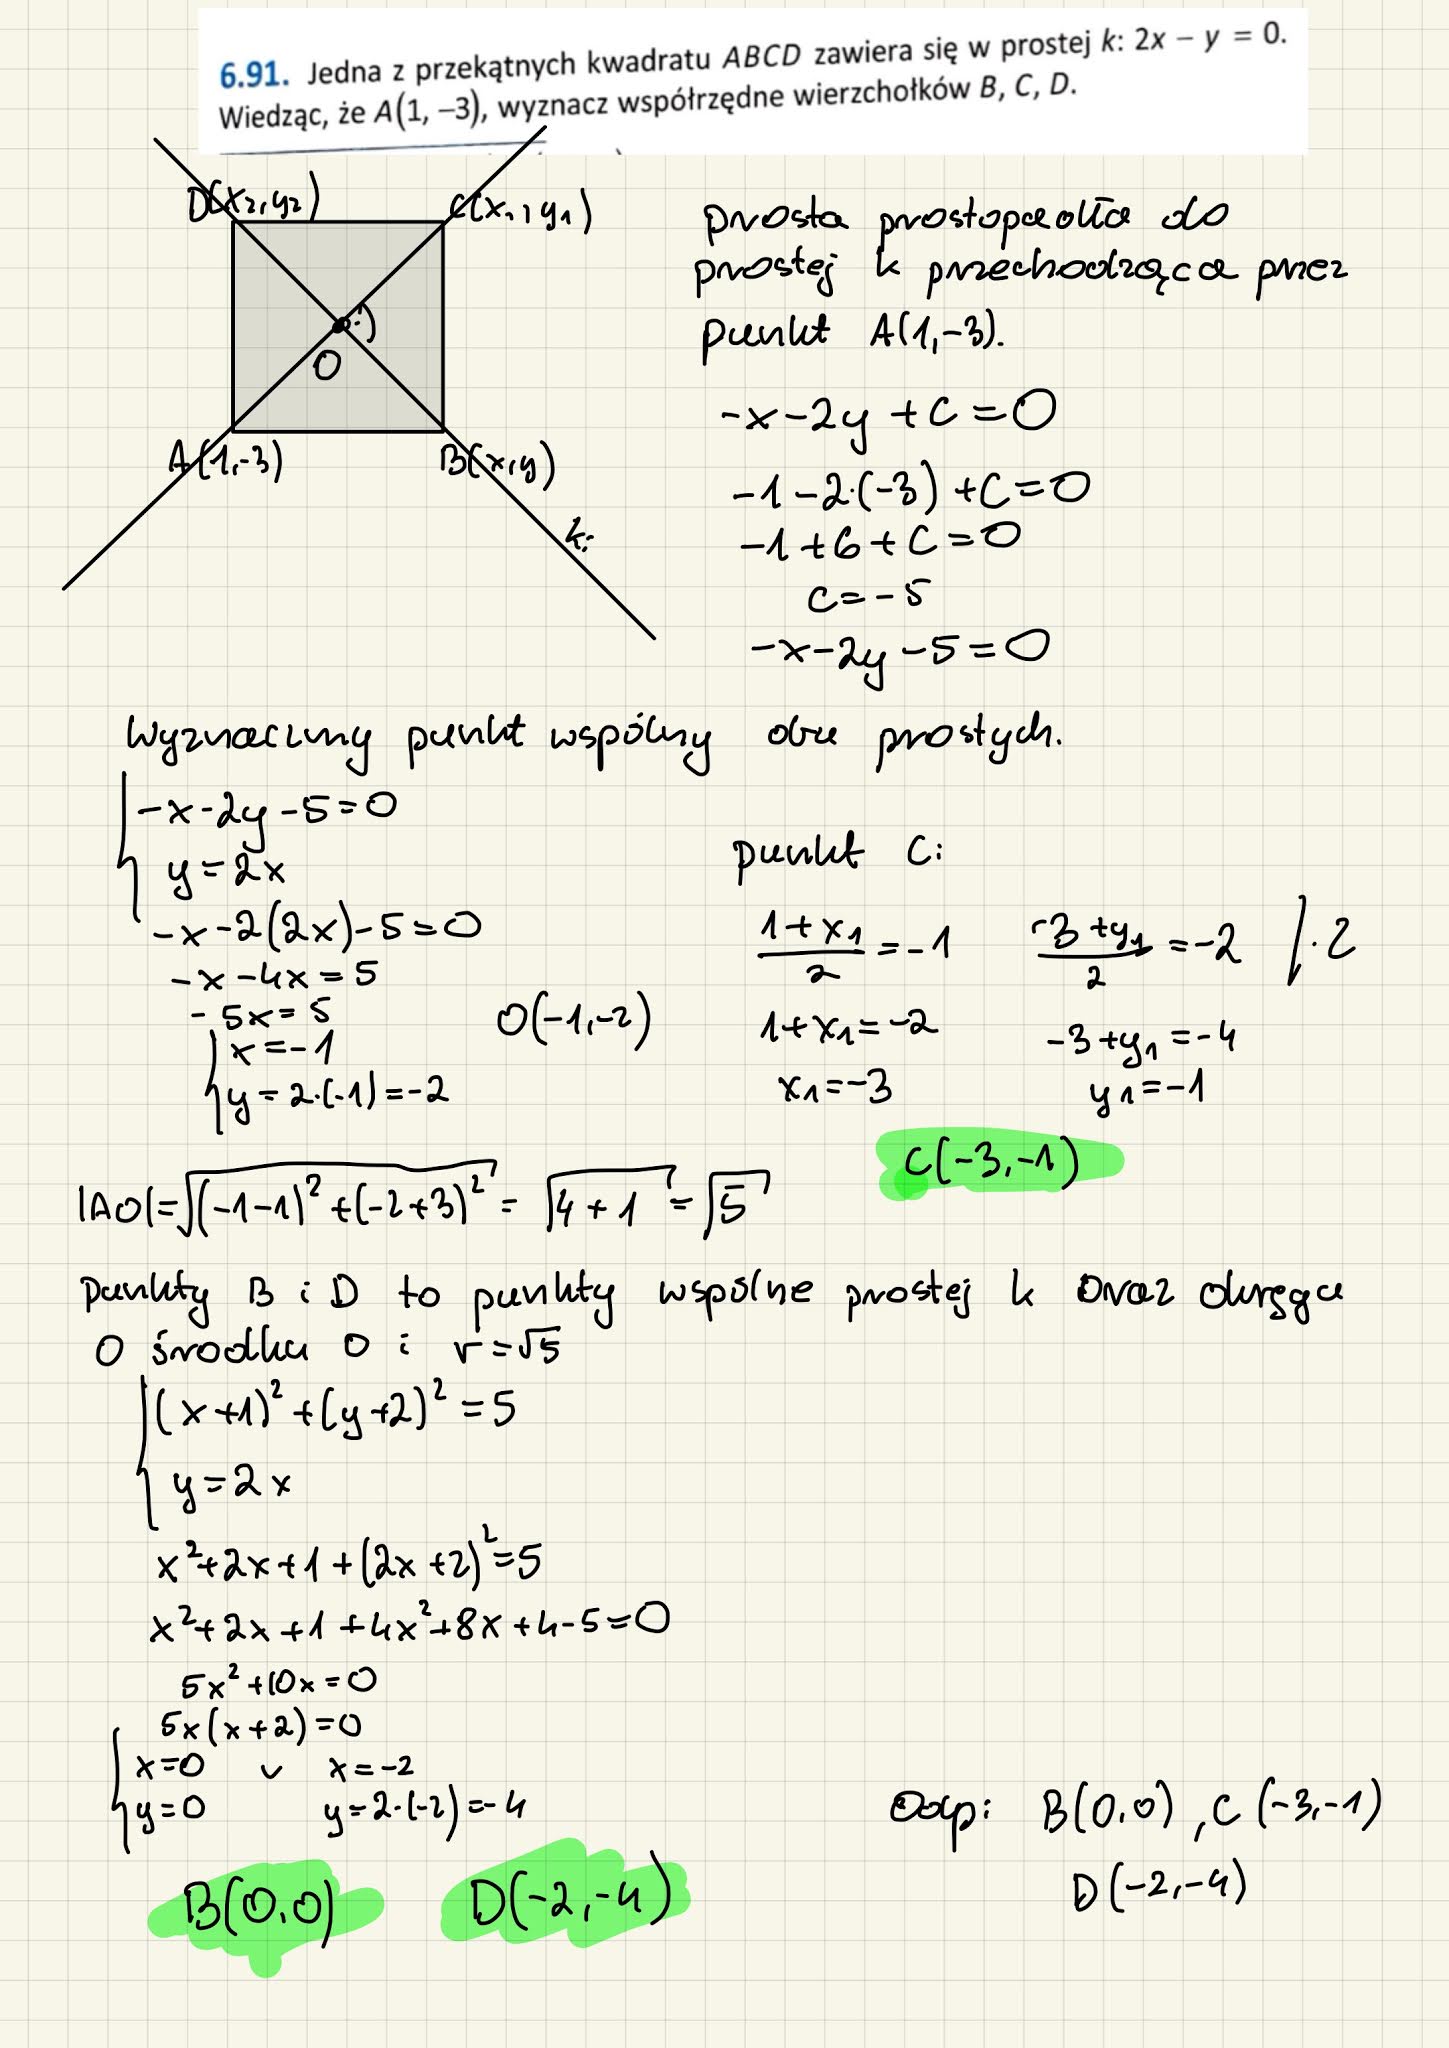 6.91. Jedna z przekątnych kwadratu ABCD zawiera się w prostej k: 2x − y = 0.
Wiedząc, że A(1, −3), wyznacz współrzędne wierzchołków B, C, D.
D(x₂,y₂)
C(x₁,y₁)
O
A(1,-3)
B(x,y)
k:
prosta prostopadła do
prostej k przechodząca przez
punkt A(1,-3).
-x-2y+C=0
-1-2·(-3)+C=0
-1+6+C=0
C=-5
-x-2y-5=0
Wyznaczmy punkt wspólny obu prostych.
-x-2y-5=0
y=2x
-x-2(2x)-5=0
-x-4x=5
-5x=5
x=-1
y=2·(-1)=-2
O(-1,-2)
punkt C:
(1+x₁)/2=-1
(-3+y₁)/2=-2 /·2
1+x₁=-2
-3+y₁=-4
x₁=-3
y₁=-1
C(-3,-1)
|AO|=√((-1-1)²+(-2+3)²)=√(4+1)=√5
Punkty B i D to punkty wspólne prostej k oraz okręgu
o środku O i r=√5
(x+1)²+(y+2)²=5
y=2x
x²+2x+1+(2x+2)²=5
x²+2x+1+4x²+8x+4-5=0
5x²+10x=0
5x(x+2)=0
x=0 ∨ x=-2
y=0 y=2·(-2)=-4
B(0,0) D(-2,-4)
Odp: B(0,0), C(-3,-1)
D(-2,-4)